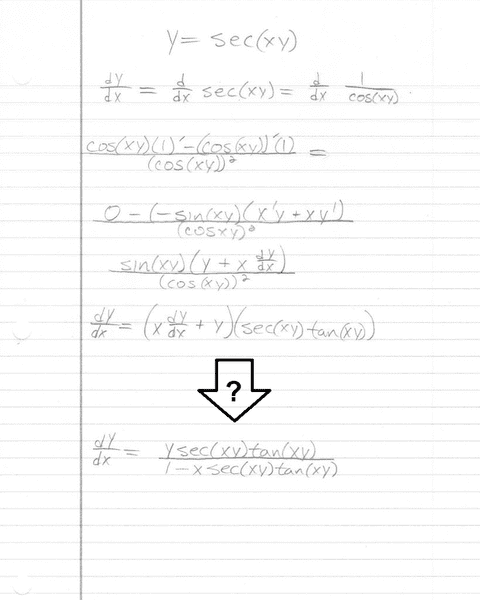 y = sec(xy)
dy/dx = d/dx sec(xy) = d/dx 1/cos(xy)
cos(xy)(1)' - (cos(xy))'(1)/(cos(xy))² =
0 - (-sin(xy)(x'y + xy')/(cosxy)²
sin(xy)(y + x dy/dx)/(cos(xy))²
dy/dx = (x dy/dx + y)(sec(xy)tan(xy))
?
dy/dx = ysec(xy)tan(xy)/1 - xsec(xy)tan(xy)